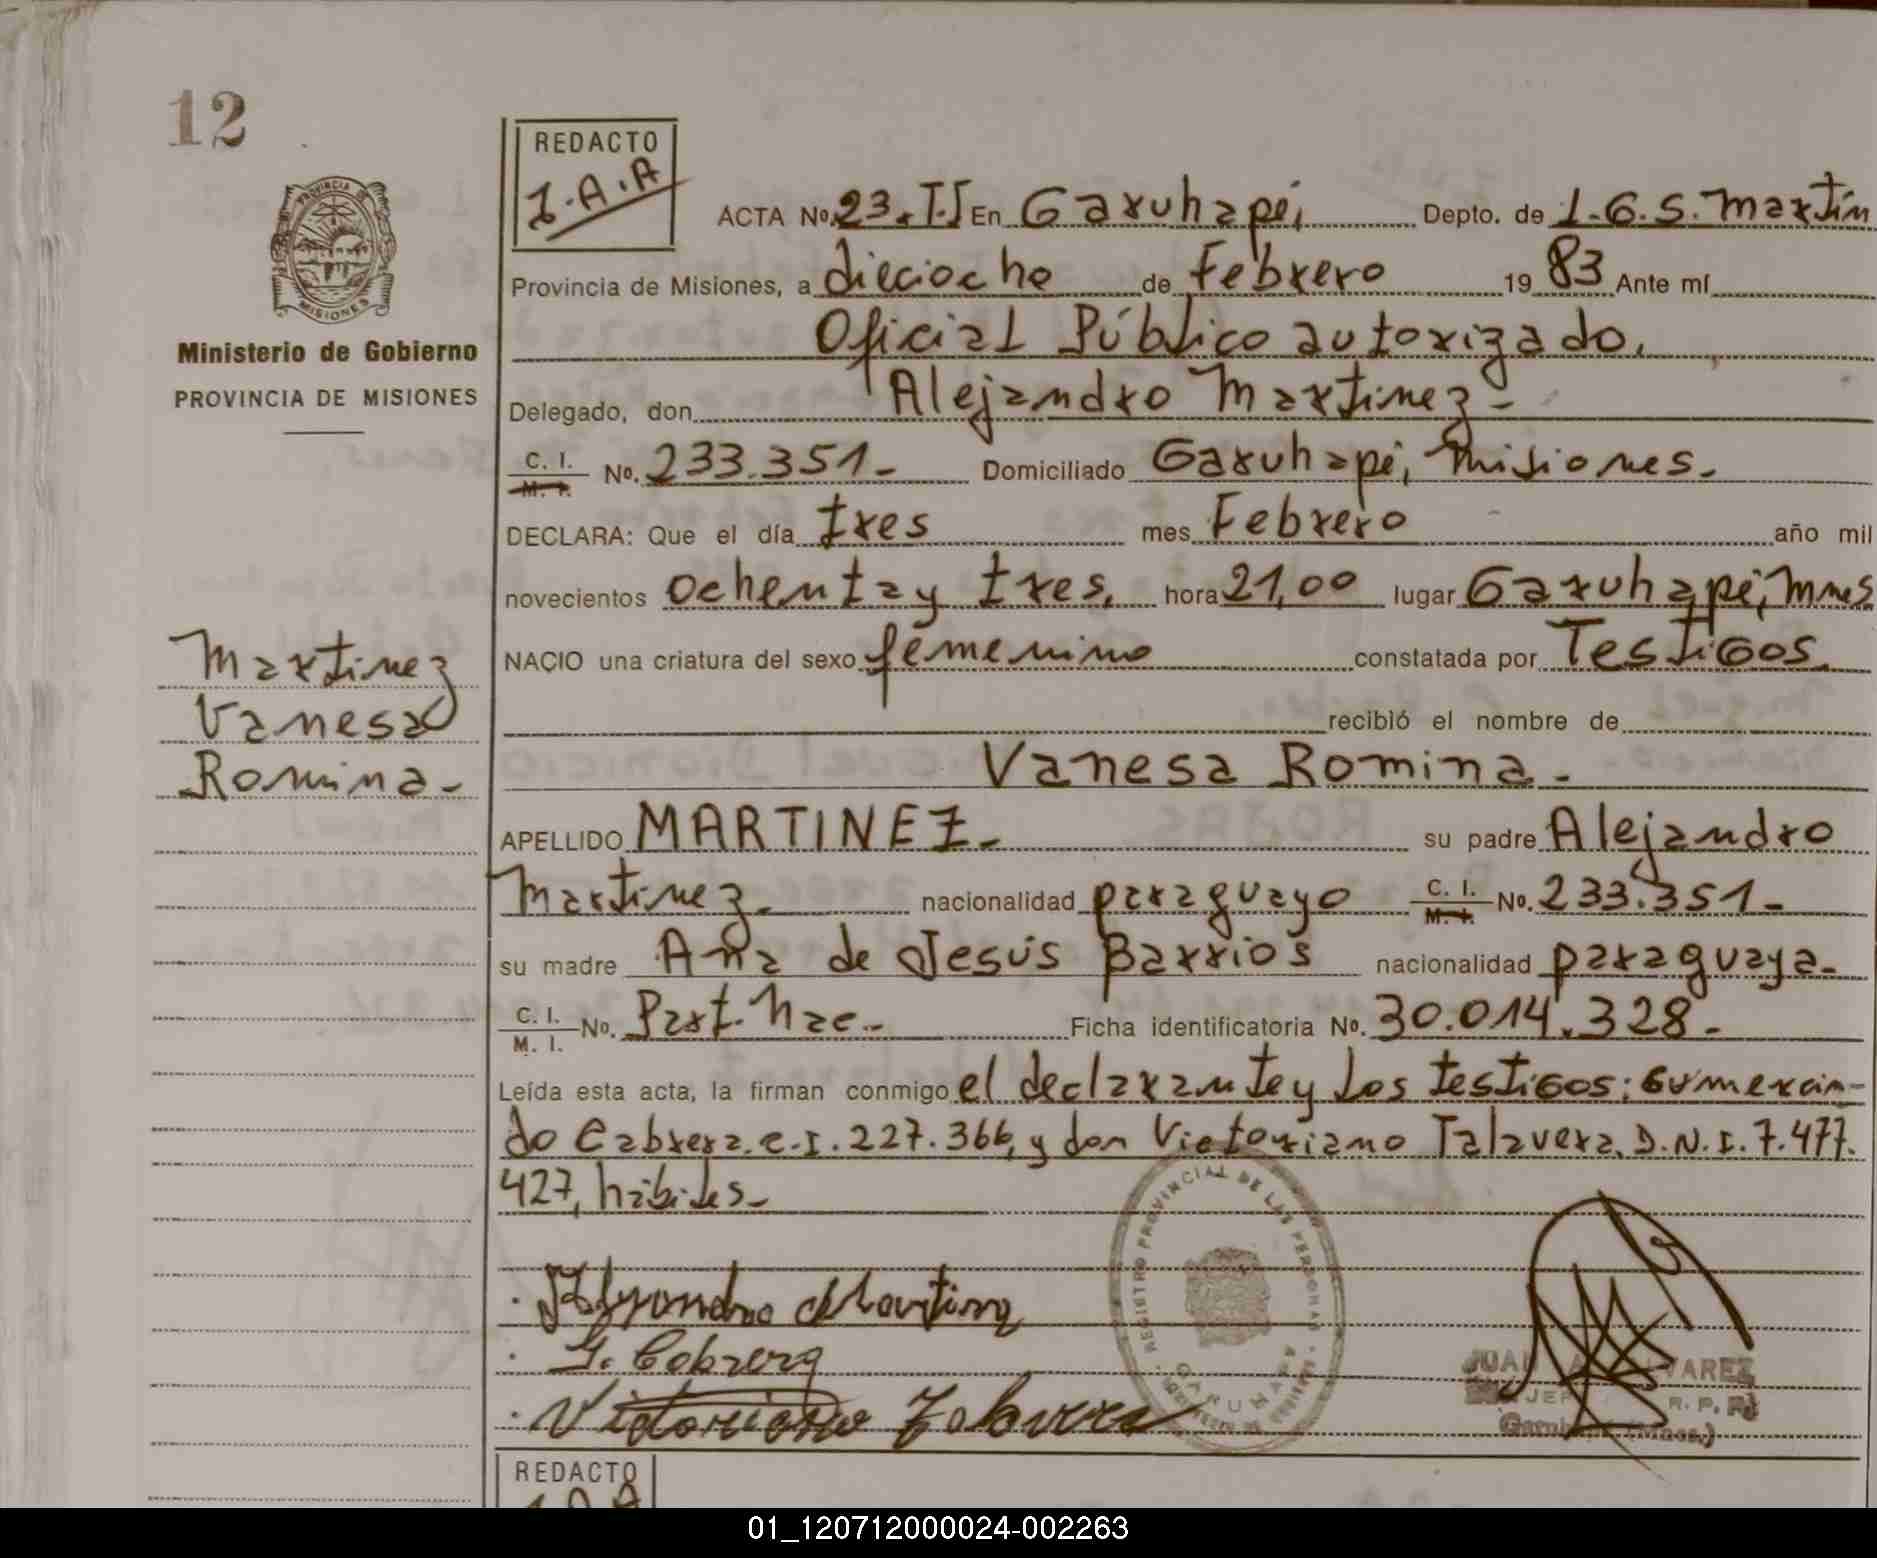 12
REDACTO
J.A.A
ACTA No. 23.T.I En Garuhapé, Depto. de L.G.S. Martín
Provincia de Misiones, a dieciocho de Febrero 19 83 Ante mí
Oficial Público autorizado,
Delegado, don Alejandro Martinez-
C. I. M. I. No. 233.351- Domiciliado Garuhapé, Misiones.
DECLARA: Que el día tres mes Febrero año mil
novecientos ochenta y tres, hora 21,00 lugar Garuhapé, Mnes
NACIO una criatura del sexo femenino constatada por Testigos.
recibió el nombre de
Vanesa Romina.
APELLIDO MARTINEZ- su padre Alejandro
Martinez. nacionalidad paraguayo C. I. M. I. No. 233.351-
su madre Ana de Jesús Barrios nacionalidad paraguaya-
C. I. M. I. No. Part. Nac.- Ficha identificatoria No. 30.014.328-
Leída esta acta, la firman conmigo el declarante y los testigos: Gumercin-
do Cabrera. C.I. 227.366, y don Victoriano Talavera. D.N.I. 7.477.
427, hábiles-
Alejandro Martinez
G. Cabrera
Victoriano Talavera
PROVINCIA DE
MISIONES
Ministerio de Gobierno
PROVINCIA DE MISIONES
Martinez
Vanesa
Romina-
REGISTRO PROVINCIAL DE LAS PERSONAS
GARUHAPE
JUAN A. ALVAREZ
JEFE R. P. P.
Garuhapé (Mnes.)
REDACTO
01_120712000024-002263